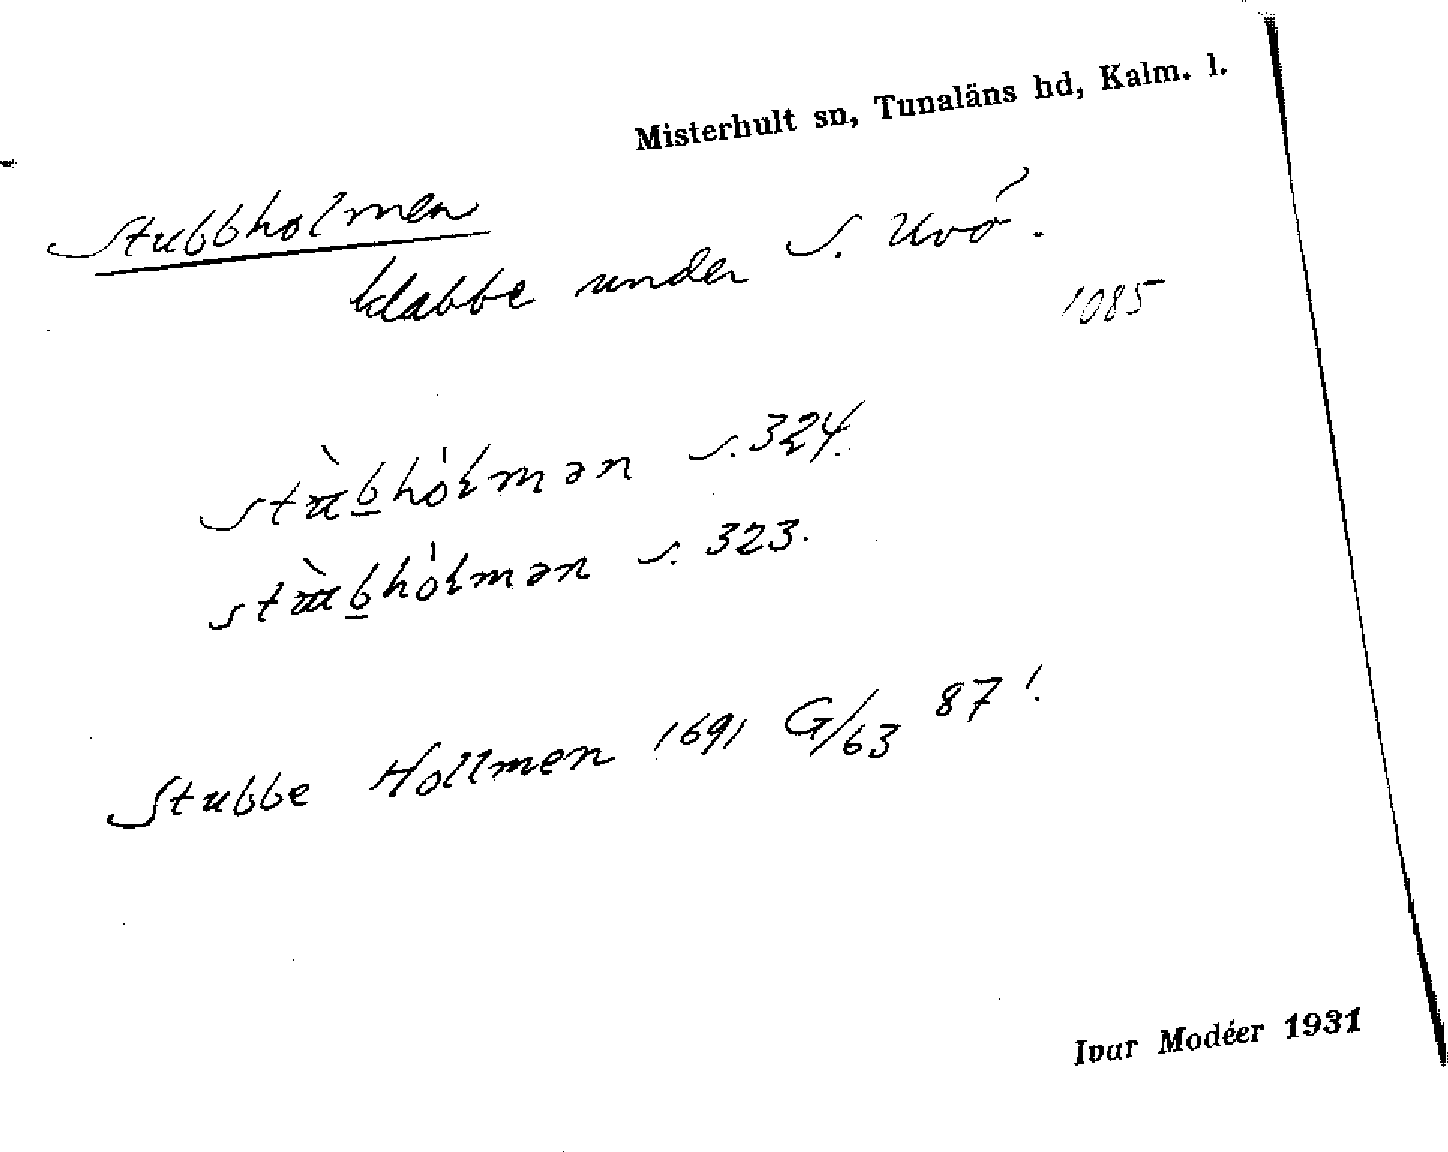 Misterhult sn, Tunaläns hd, Kalm. l.
Stubbholmen
klabbe under S. Uvö.
1085
stu̇̀b̲hȯ́lmən s. 324.
stu̇̀b̲hȯ́lmən s. 323.
Stubbe Hollmen 1691 G/63 87!
Ivar Modéer 1931